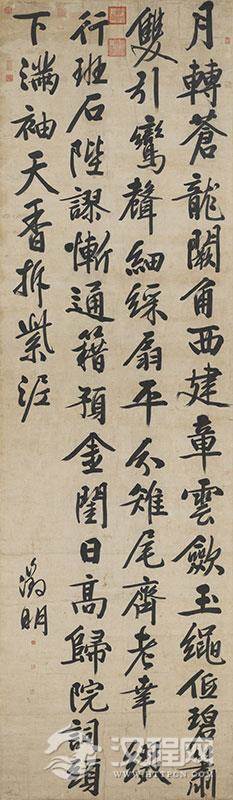 月轉蒼龍闕角西建章雲歛玉繩低碧簫
雙引鸞聲細綵扇平分雉尾齊老幸綴
行班石陛謬慚通籍預金閨日高歸院詞頭
下滿袖天香拆紫泥
徵明
汉程网
HTTPCN.COM